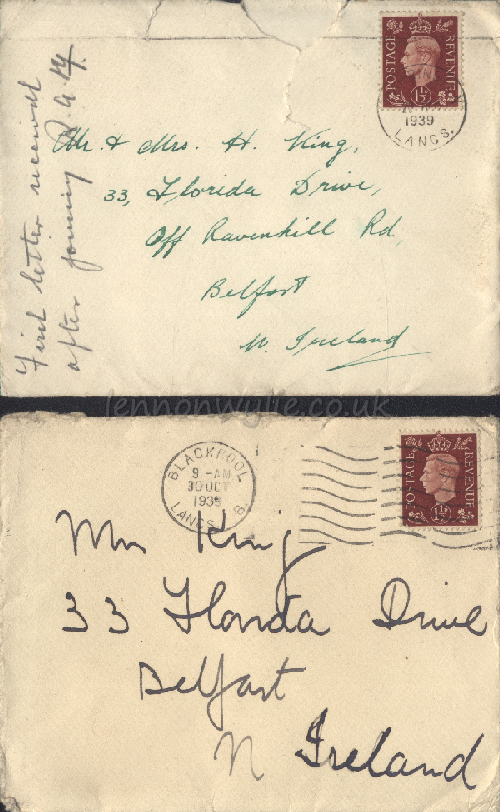 POSTAGE REVENUE
1½D
1939
LANCS.
First letter received
after joining R.A.F.
Mr. & Mrs. H. King,
33, Florida Drive,
Off Ravenhill Rd,
Belfast
N. Ireland
lennonwylie.co.uk
BLACKPOOL
9 - AM
30 OCT
1939
LANCS. B.
POSTAGE REVENUE
1½D
Mrs King
33 Florida Drive
Belfast
N Ireland